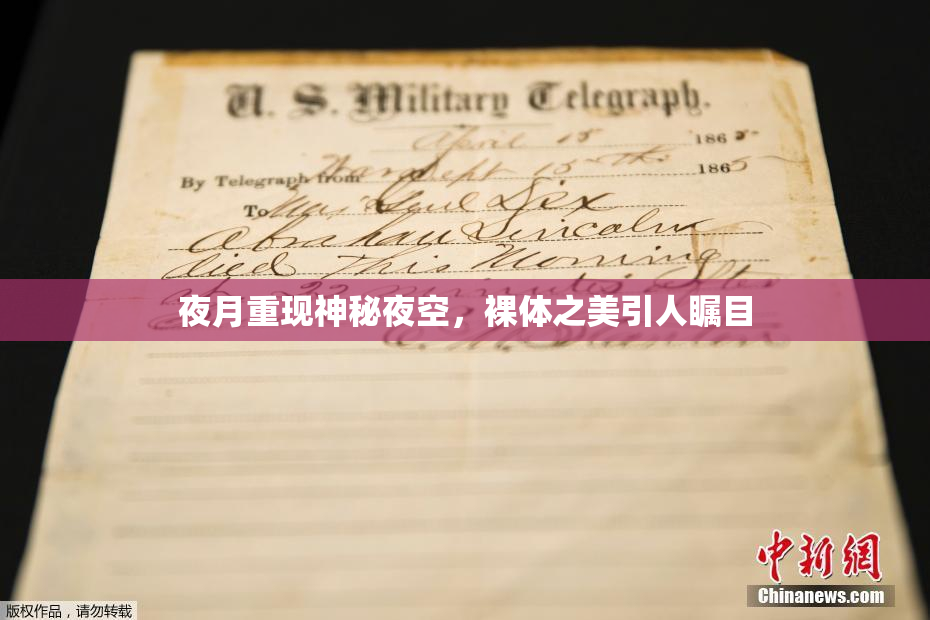 U. S. Military Telegraph.
April 15 1865
By Telegraph from War Dept 15th 1865
To Maj Genl Dix
Abraham Lincoln
died This Morning
at 22 minutes After
夜月重现神秘夜空，裸体之美引人瞩目
E. M. Stanton
中新网
Chinanews.com
版权作品，请勿转载